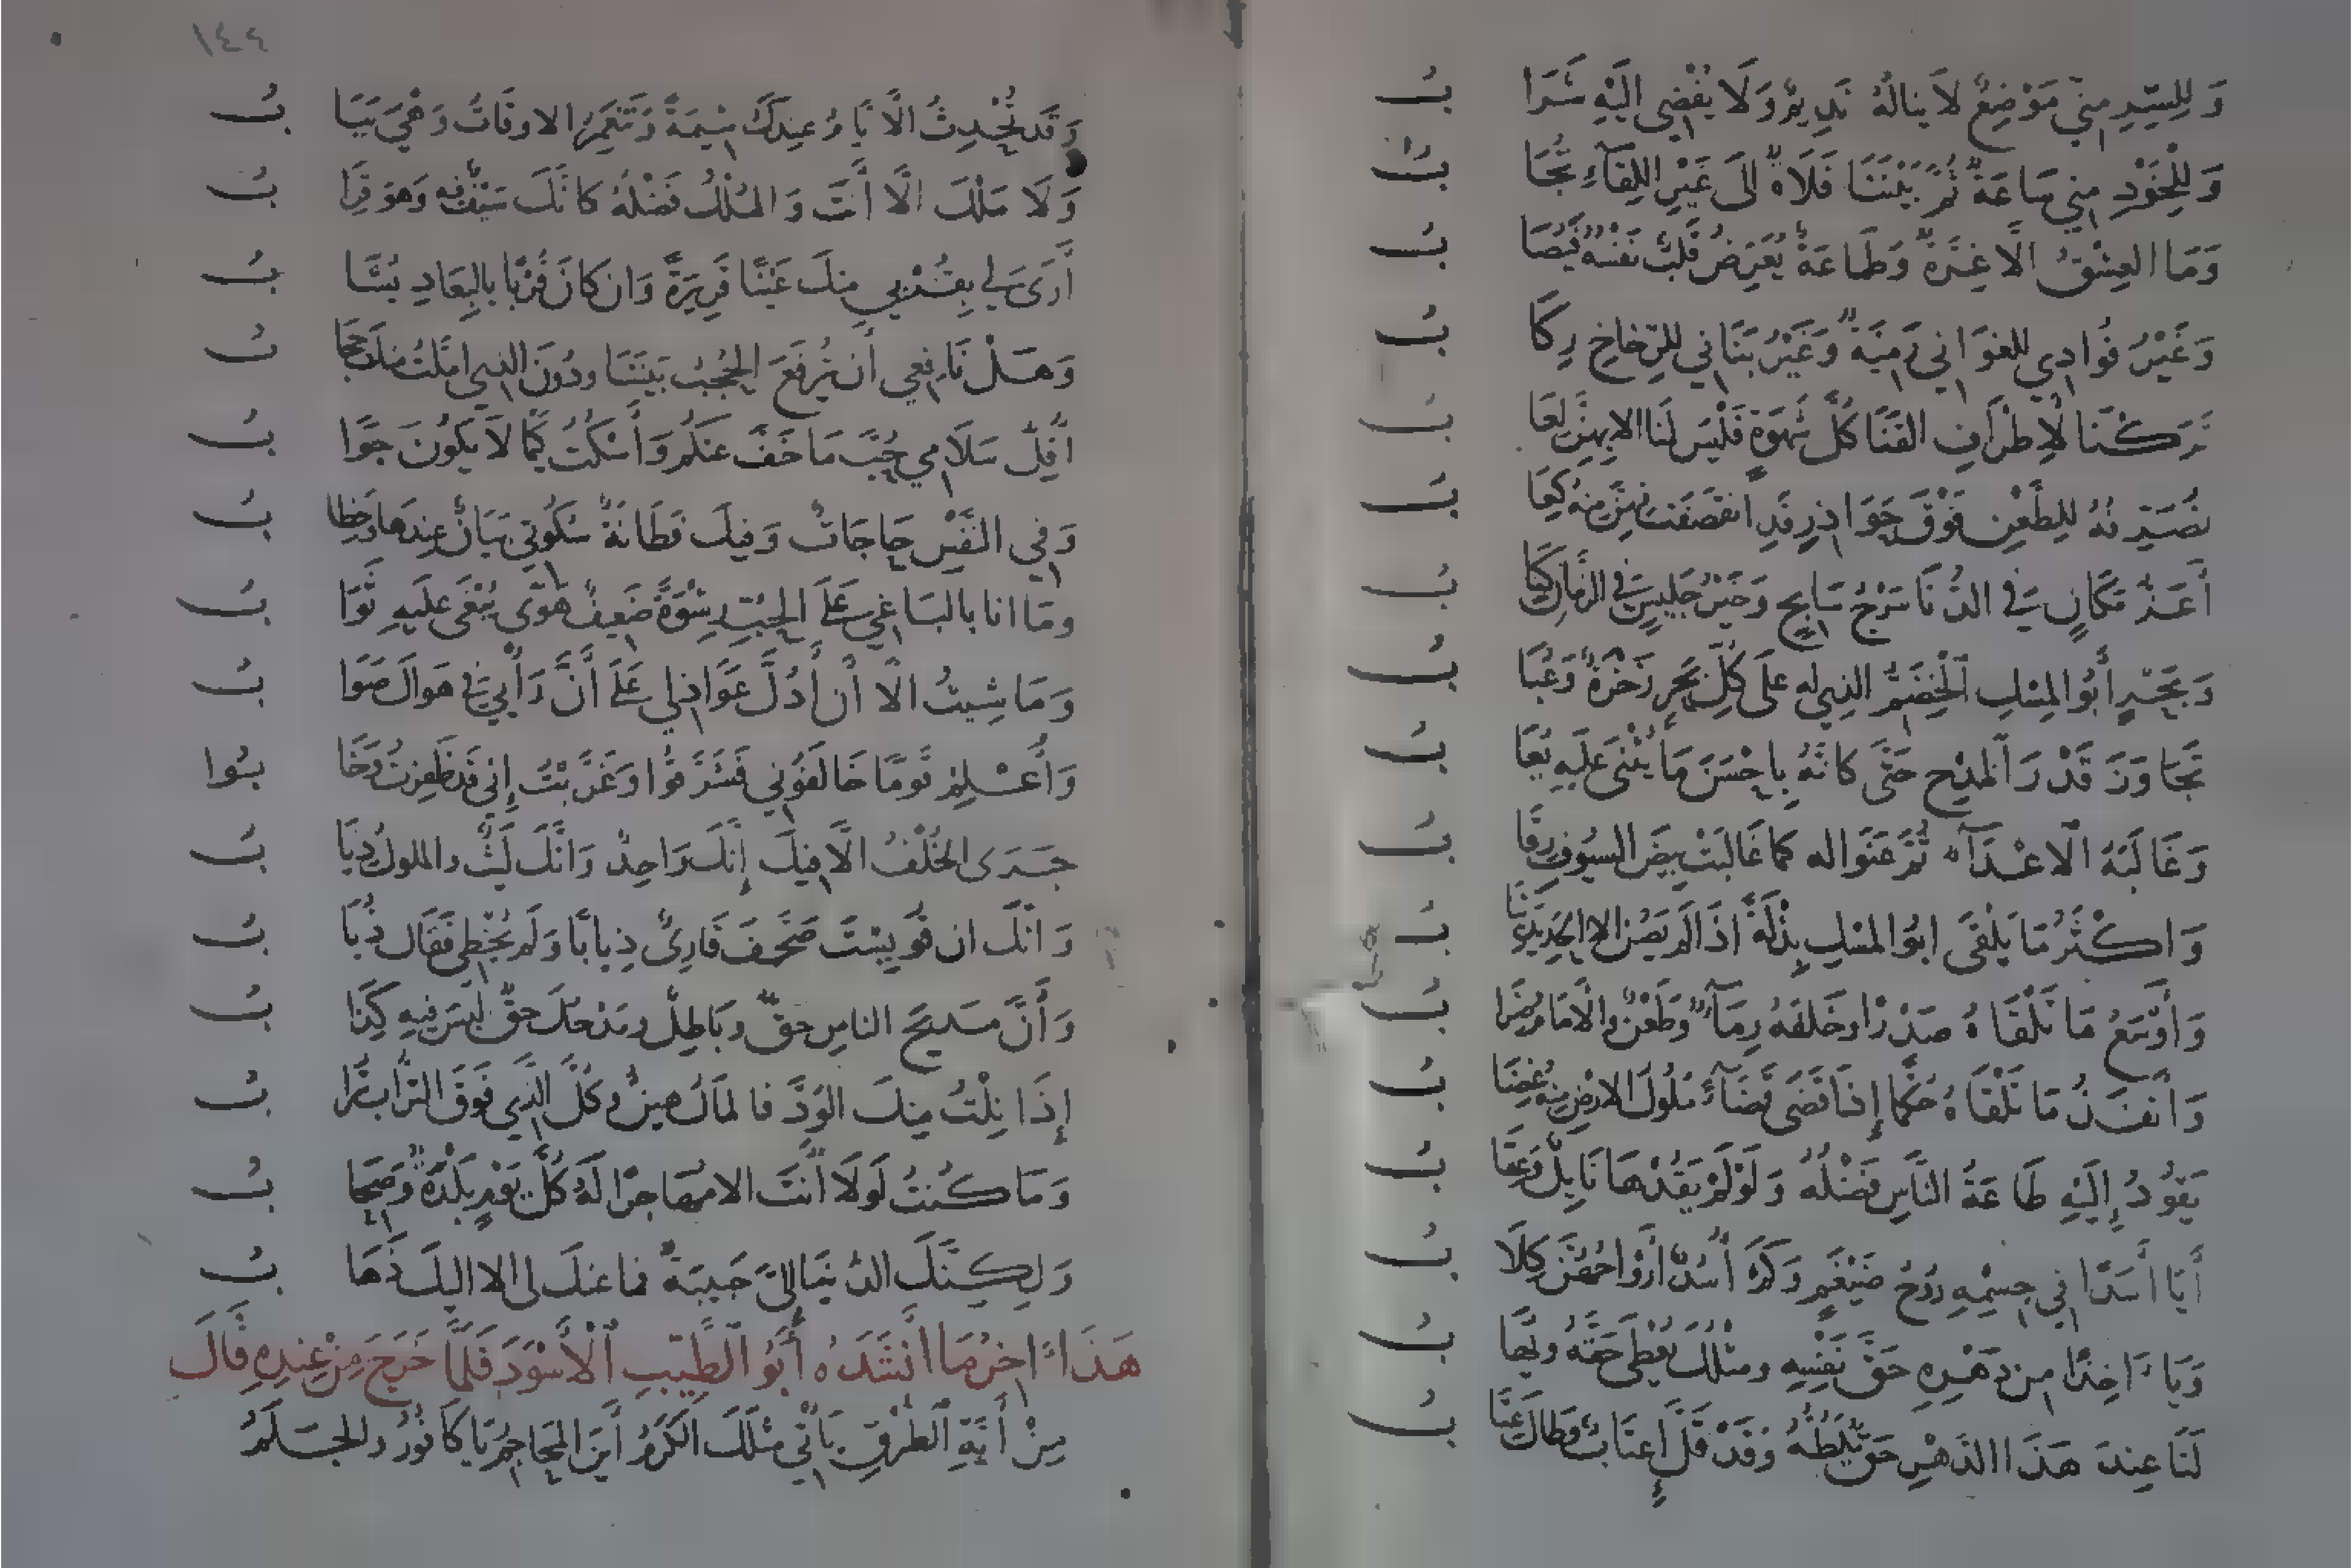 وَلِلسِّرِّ مِنّي مَوْضِعٌ لَا يَنالُهُ نَدِيمٌ وَلَا يُفْضِي اِلَيْهِ شَرَا بُ
وَلِلْخَوْدِ مِنّي سَاعَةٌ ثُمَّ بَيْنَنَا فَلَاةٌ اِلَى غَيْرِ اللِقَآءِ تُجَا بُ
وَمَا العِشْقُ اِلَّا غِرَّةٌ وَطَمَاعَةٌ يُعَرِّضُ قَلْبٌ نَفْسَهُ فَيُصَا بُ
وَغَيْرُ فُوَادِي لِلغَوَانِي رَمِيَّةٌ وَغَيْرُ بَنَانِي لِلرِّخَاخِ رِكَا بُ
تَرَكْنَا لِاَطْرَافِ القَنَا كُلَّ شَهْوَةٍ فَلَيْسَ لَنَا اِلا بِهِنَّ لِعَا بُ
نُصَرِّفُهُ لِلطَعْنِ فَوْقَ حَوَاذِرٍ قَدِ انْقَصَفَتْ فِيهِنَّ مِنهُ كِعَا بُ
أَعَزُّ مَكَانٍ فِي الدُّنَا سَرْجُ سَابِحٍ وَخَيْرُ جَلِيسٍ فِي الزَّمَانِ كِتَا بُ
وَبَحْرٍ أَبُو المِسْكِ الْخِضَمُّ الذِي لَهُ عَلَى كُلِّ بَحْرٍ زَخْرَةٌ وَعُبَا بُ
تَجَاوَزَ قَدْرَ الْمَدْحِ حَتَّى كَانَّهُ بِاَحْسَنِ مَا يُثْنَى عَلَيْهِ يُعَا بُ
وَغَالَبَهُ الْاَعْدَآءُ ثُمَّ عَنَوْا لَهُ كَمَا غَالَبَتْ بِيضَ السيُوفِ رِقَا بُ
وَاَكْثَرُ مَا يَلْقَى ابُو المسْكِ بِذْلَةً اِذَا لَم يَصُنْ اِلا الحَدِيدَ ثِيَا بُ
وَأَوْسَعُ مَا تَلْقَاهُ صَدْرًا وَخَلفَهُ رِمَآءٌ وَطَعْنٌ وَالْاَمَامَ ضِرَا بُ
وَأَنفَذُ مَا تَلْقَاهُ حُكْمًا إِذَا قَضَى قَضَآءً مُلُوكُ الاَرْضِ مِنهُ غِضَا بُ
يَقُودُ إِلَيْهِ طَاعَةَ النَّاسِ فَضْلُهُ وَلَوْ لَمْ يَقُدْهَا نَايِلٌ وَعِقَا بُ
أَيَا أَسَدًا فِي جِسْمِهِ رُوحُ ضَيْغَمٍ وَكَمْ أُسُدٌ أَرْوَاحُهُنَّ كِلَا بُ
وَيَا ءَاخِذًا مِن دَهْرِهِ حَقَّ نَفْسِهِ وَمِثْلُكَ يُعْطَى حَقَّهُ وَيُهَا بُ
لَنَا عِندَ هَذَا الدَهْرِ حَقٌّ يَلُطُّهُ وَقَدْ قَلَّ إِعتَابٌ وَطَالَ عِتَا بُ
وَقَد تُحْدِثُ الْاَيَّامُ عِندَكَ شِيمَةً وَتَنْعَمِرُ الاوقَاتُ وَهْيَ يَبَا بُ
وَلَا مَلْكَ اِلَّا أَنتَ وَالمُلْكُ فَضْلَةٌ كَانَّكَ سَيْفٌ فيهِ وَهوَ قِرَا بُ
أَرَى لِي بِقُرْبِي مِنكَ عَيْنًا قَرِيرَةً وَاِن كَانَ قُرْبًا بِالبِعَادِ يُشَا بُ
وَهَلْ نَافِعِي أَن تُرْفَعَ الحُجْبُ بَينَنَا وَدُونَ الذِي امَّلتُ مِنكَ حِجَا بُ
أُقِلُّ سَلَامِي حُبَّ مَا خَفَّ عَنكُمُ وَأَسْكُتُ كَيْمَا لَا يَكُونَ جَوَا بُ
وَفِي النَفْسِ حَاجَاتٌ وَفِيكَ فَطَانَةٌ سُكُوتِي بَيَانٌ عِندَهَا وَخِطَا بُ
وَمَا انا بِالبَاغِي عَلَى الحُبِّ رِشْوَةً ضَعِيفٌ هَوًى يُبْغَى عَلَيهِ ثَوَا بُ
وَمَا شِيتُ اِلَّا أَن أَدُلَّ عَوَاذِلِي عَلَى أَنَّ رَأْيِي فِي هَوَاكَ صَوَا بُ
وَأُعْلِمَ قَومًا خَالَفُونِي فَشَرَّقُوا وَغَرَّبْتُ إِنّي قَد ظَفِرتُ وَخَا بُوا
جَرَى الخُلْفُ اِلَّا فِيكَ إِنَّكَ وَاحِدٌ وَانَّكَ لَيْثٌ والملوكُ ذِيَا بُ
وَانَّكَ ان قُويِسْتَ صَحَّفَ قَارِئٌ ذِيَابًا وَلَم يُخْطِي فَقَال ذُبَا بُ
وَأَنَّ مَدِيحَ الناسِ حَقٌّ وَبَاطِلٌ وَمَدْحُكَ حَقٌّ لَيسَ فِيهِ كِذَا بُ
إِذَا نِلْتُ مِنكَ الوُدَّ فَالمَالُ هَينٌ وَكُلُّ الَّذِي فَوقَ التُّرَابِ تُرَا بُ
وَمَا كُنتُ لَولَا أَنتَ اِلا مُهَاجِرًا لَهُ كُلَّ يَوْمٍ بَلْدَةٌ وَصِحَا بُ
وَلكِنَّكَ الدُنيَا اِلَيَّ حَبِيبَةً فما عنكَ لِي اِلا اِلَيكَ ذَهَا بُ
هَذَا ءَاخِرُ مَا أَنشَدَهُ أَبُو الطَّيِّبِ الْأَسْوَدَ فَلَمَّا خَرَجَ مِنْ عِندِهِ قَالَ
مِنْ أَيَّةِ الطُرْقِ يَأتِي مِثْلَكَ الكَرَمُ أَينَ المَحَاجِمُ يَا كَافُورُ والجَلَمُ